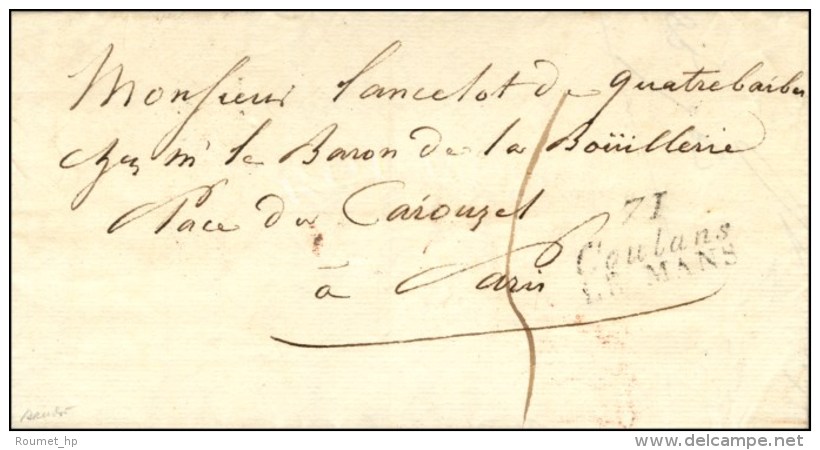 Monsieur Lancelot de quatrebarbes
chez mr le Baron de la Boüillerie
Place du Carouzel
à Paris
71
Coulans
LE MANS
Roumet_hp
delcampe.net